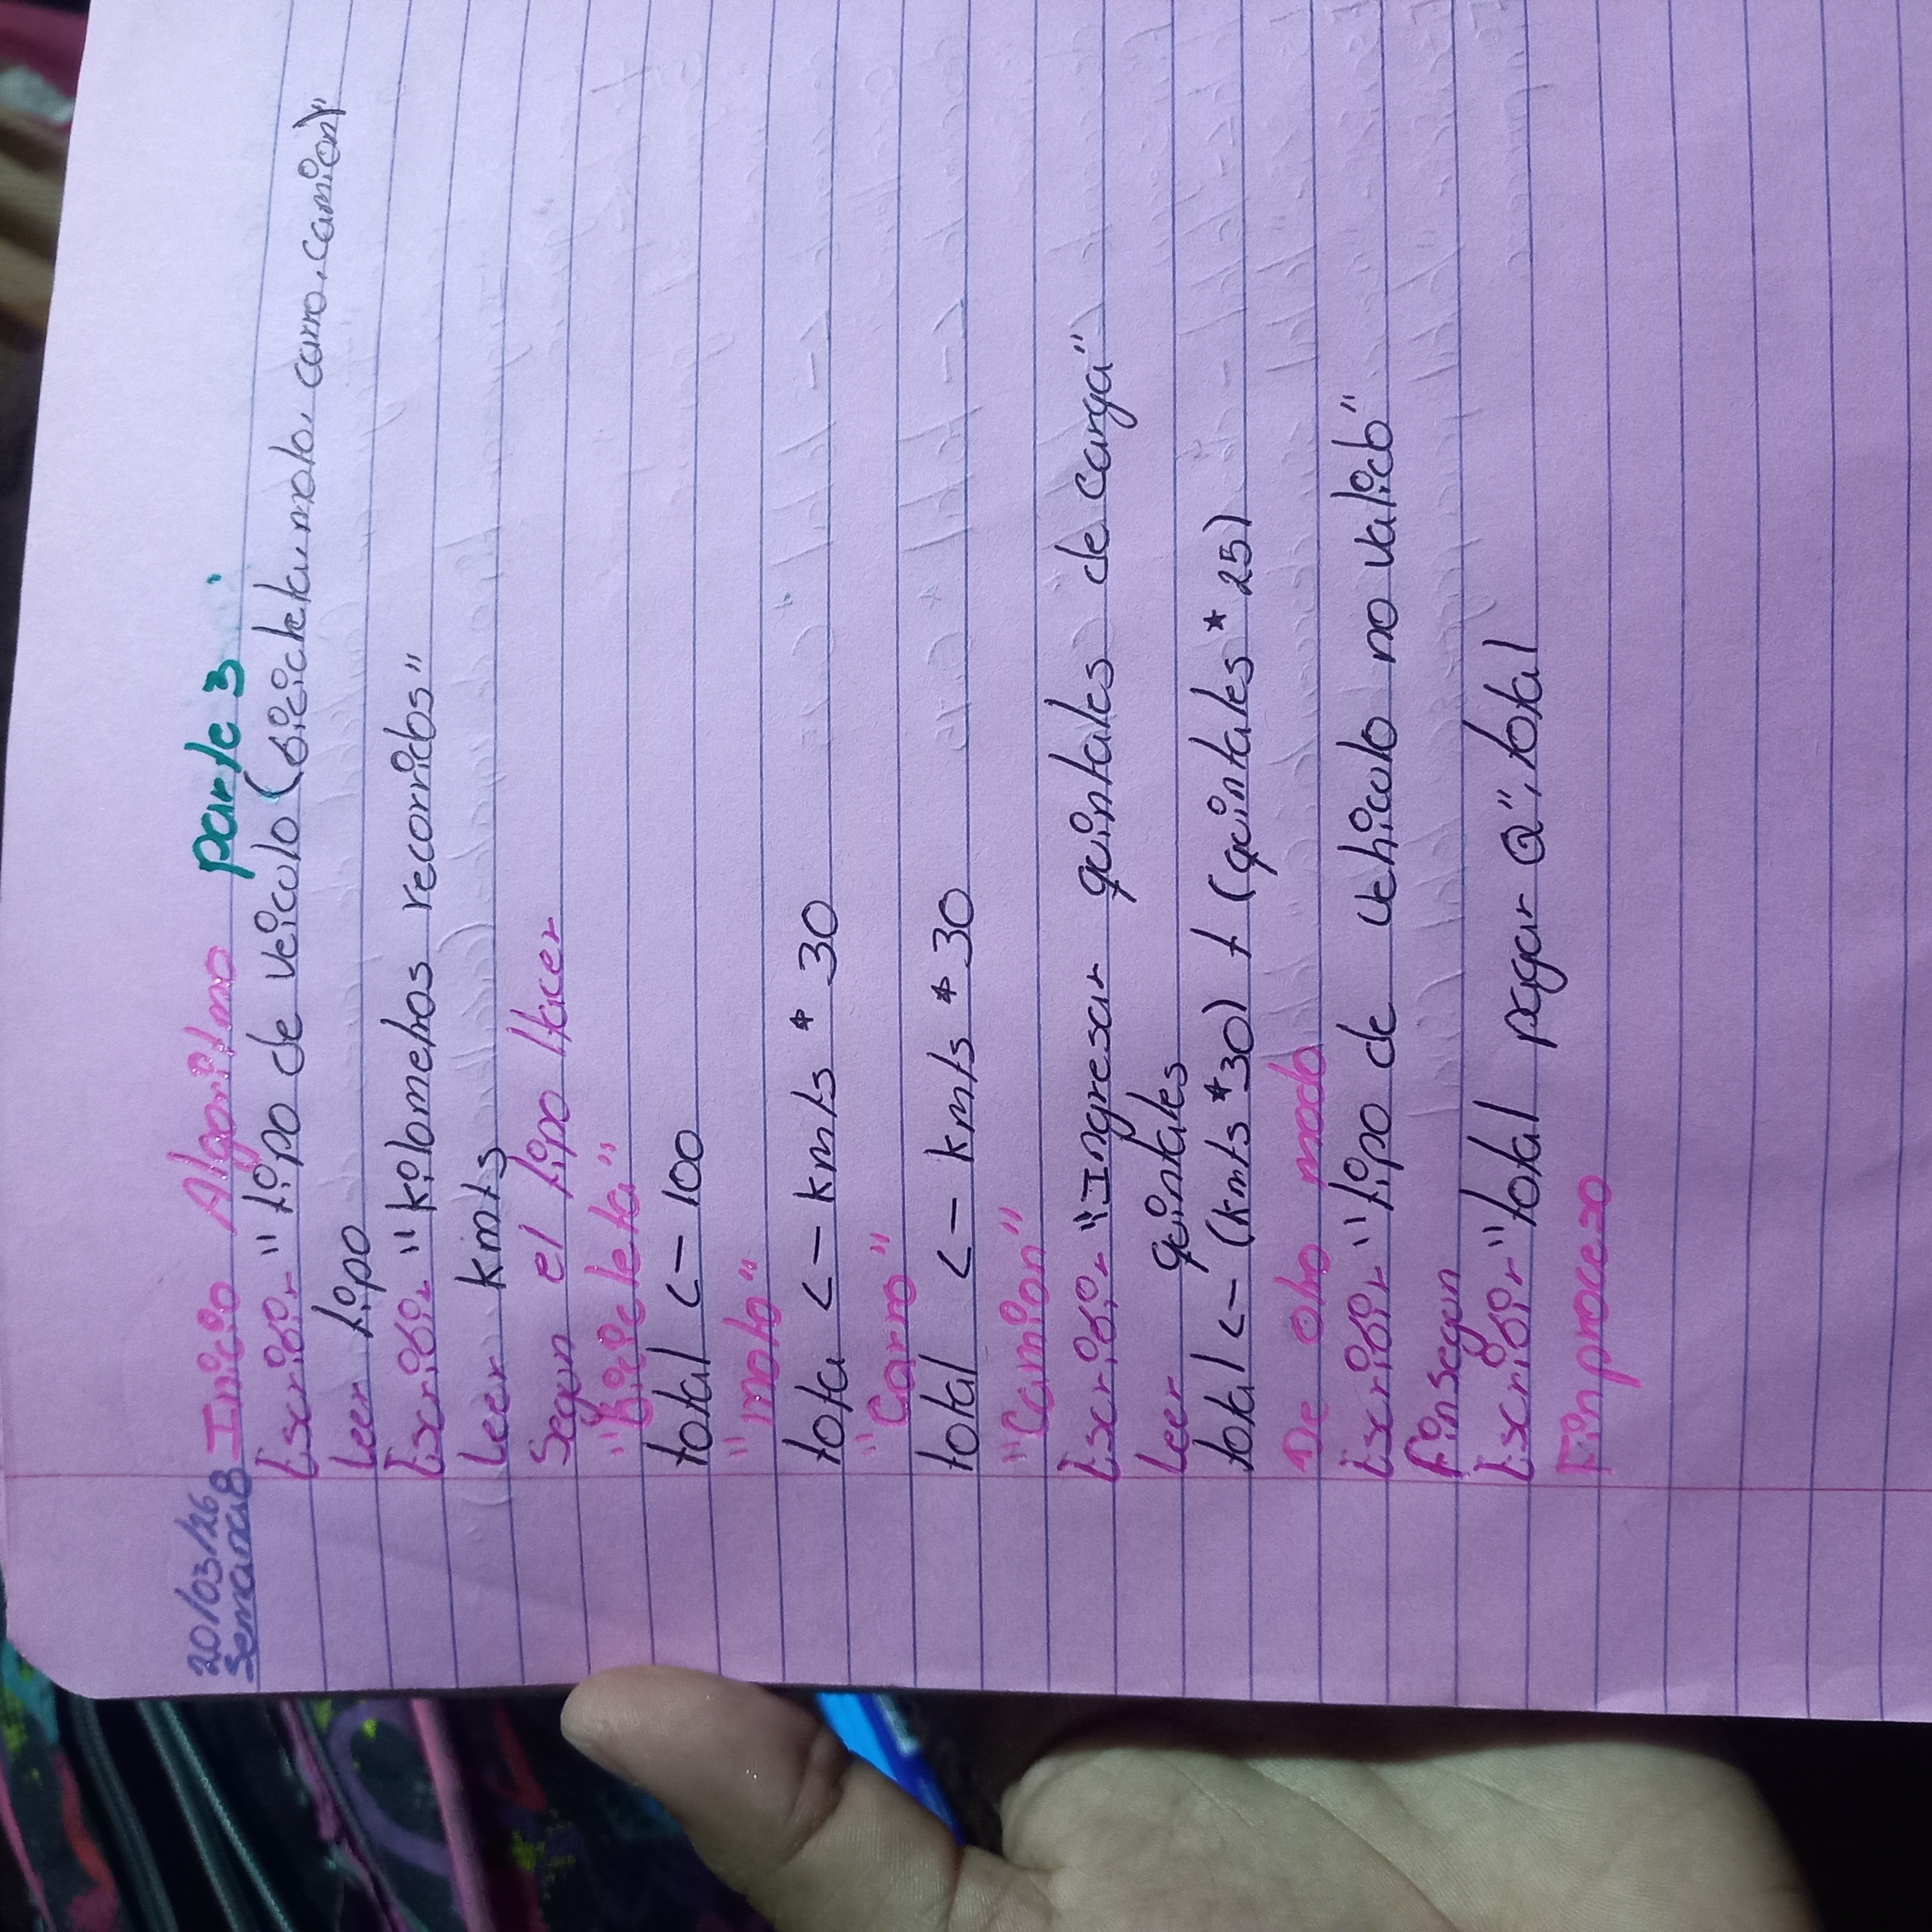 20/03/26
Semana 8 Inicio Algoritmo parte 3.
Escribir "tipo de veiculo (bicicleta, moto, carro, camion)"
Leer tipo
Escribir "kilometros recorridos"
Leer kmts
Segun el tipo Hacer
"Bicicleta"
total <- 100
"moto"
tota <- kmts * 30
"Carro"
total <- kmts * 30
"Camion"
Escribir "Ingresar quintales de carga"
Leer quintales
total <- (kmts * 30) + (quintales * 25)
De otro modo
Escribir "tipo de vehiculo no valido"
finsegun
Escribir "total pagar Q", total
Finproceso